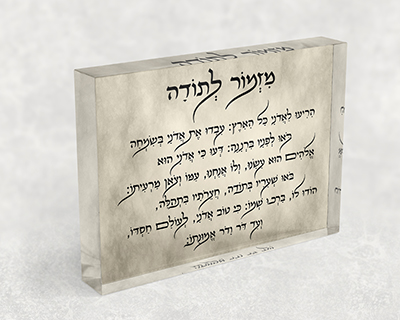 מִזְמוֹר לְתוֹדָה
הָרִיעוּ לַאדֹנָי כָּל הָאָרֶץ: עִבְדוּ אֶת אֲדֹנָי בְּשִׂמְחָה
בֹּאוּ לְפָנָיו בִּרְנָנָה: דְּעוּ כִּי אֲדֹנָי הוּא
אֱלֹהִים הוּא עָשָׂנוּ, וְלוֹ אֲנַחְנוּ, עַמּוֹ וְצֹאן מַרְעִיתוֹ:
בֹּאוּ שְׁעָרָיו בְּתוֹדָה, חֲצֵרֹתָיו בִּתְהִלָּה,
הוֹדוּ לוֹ, בָּרְכוּ שְׁמוֹ: כִּי טוֹב אֲדֹנָי, לְעוֹלָם חַסְדּוֹ,
וְעַד דֹּר וָדֹר אֱמוּנָתוֹ: